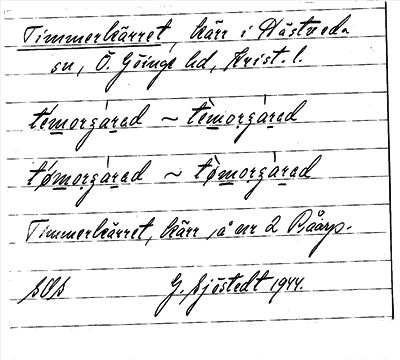 Timmerkärret, kärr i Hästveda
sn, Ö. Göinge hd, Krist. l.
temorgárad ~ tèmorgàrad
tømorgárad ~ tømorgàrad
Timmerkärret, kärr å nr 2 Båarp.
G. Sjöstedt 1944.